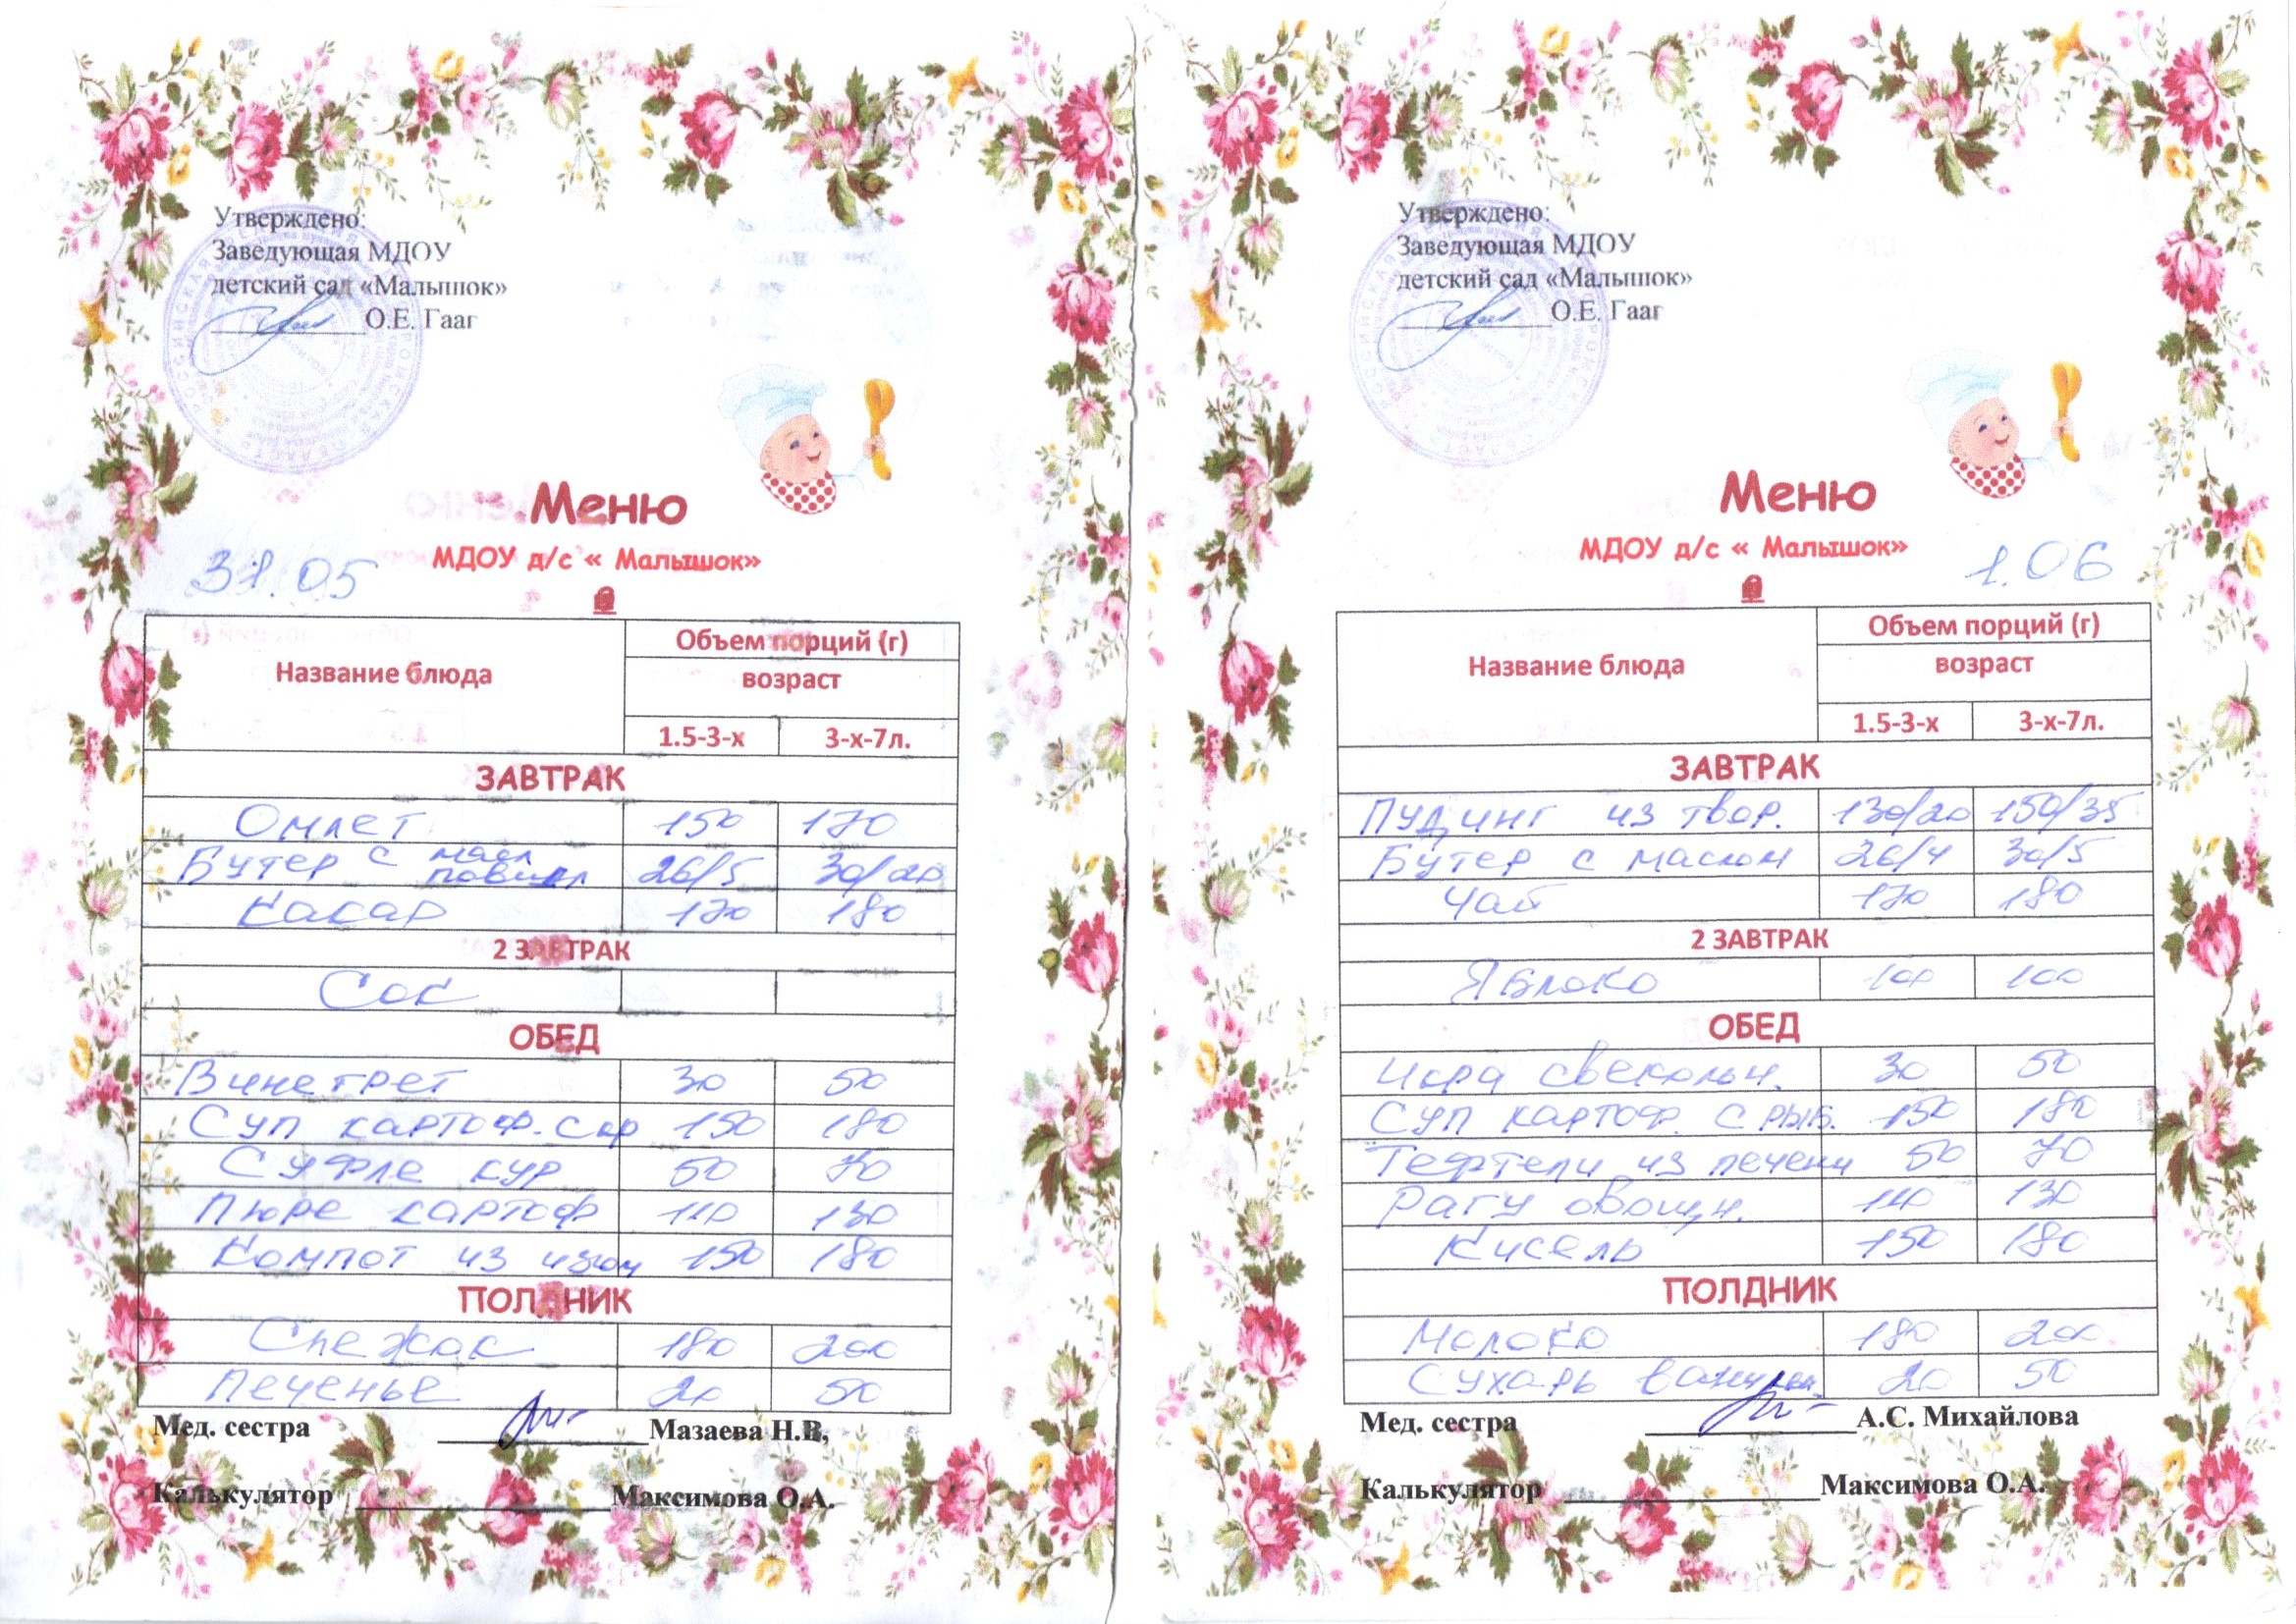 Утверждено:
Заведующая МДОУ
детский сад «Малышок»
О.Е. Гааг
Меню
МДОУ д/с « Малышок»
31.05
Название блюда
Объем порций (г)
возраст
1.5-3-х 3-х-7л.
ЗАВТРАК
Омлет 150 170
Бутер с масл повидл 26/5 30/20
Какао 170 180
2 ЗАВТРАК
Сок
ОБЕД
Винегрет 30 50
Суп картоф. 150 180
Суфле кур 50 70
Пюре картоф 110 130
Компот из изюм 150 180
ПОЛДНИК
Снежок 180 200
Печенье 20 50
Мед. сестра Мазаева Н.В,
Калькулятор Максимова О.А.
Утверждено:
Заведующая МДОУ
детский сад «Малышок»
О.Е. Гааг
Меню
МДОУ д/с « Малышок»
1.06
Название блюда
Объем порций (г)
возраст
1.5-3-х 3-х-7л.
ЗАВТРАК
Пудинг из твор. 130/20 150/35
Бутер с маслом 26/4 30/5
Чай 170 180
2 ЗАВТРАК
Яблоко 100 100
ОБЕД
Икра свекольн. 30 50
Суп картоф. с рыб. 150 180
Тефтели из печени 50 70
Рагу овощн. 110 130
Кисель 150 180
ПОЛДНИК
Молоко 180 200
Сухарь ванильн. 20 50
Мед. сестра А.С. Михайлова
Калькулятор Максимова О.А.